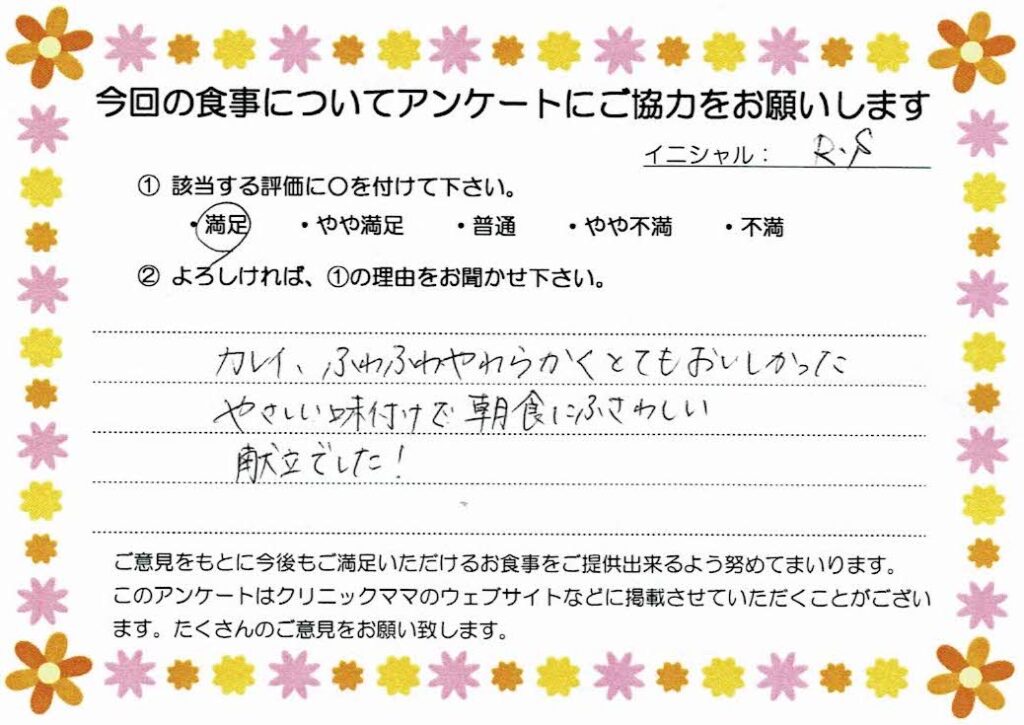 今回の食事についてアンケートにご協力をお願いします
イニシャル： R.S
① 該当する評価に〇を付けて下さい。
・満足 ・やや満足 ・普通 ・やや不満 ・不満
② よろしければ、①の理由をお聞かせ下さい。
カレイ、ふわふわやわらかくとてもおいしかった
やさしい味付けで朝食にふさわしい
献立でした！
ご意見をもとに今後もご満足いただけるお食事をご提供出来るよう努めてまいります。
このアンケートはクリニックママのウェブサイトなどに掲載させていただくことがござい
ます。たくさんのご意見をお願い致します。